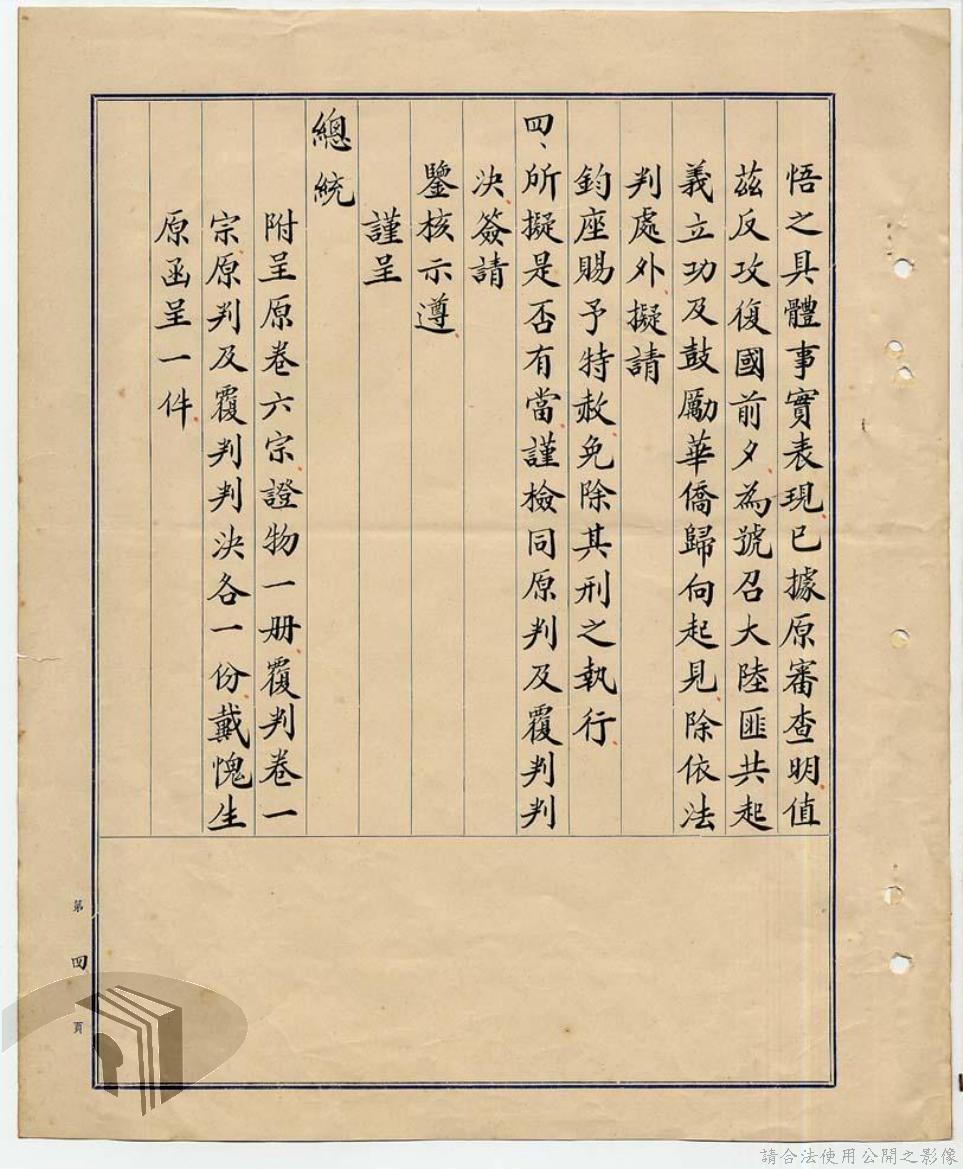 悟之具體事實表現已據原審查明值
茲反攻復國前夕為號召大陸匪共起
義立功及鼓勵華僑歸向起見除依法
判處外擬請
鈞座賜予特赦免除其刑之執行
四、所擬是否有當謹檢同原判及覆判判
決簽請
鑒核示遵
謹呈
總統
附呈原卷六宗證物一册覆判卷一
宗原判及覆判判決各一份戴愧生
原函呈一件
第四頁
請合法使用公開之影像